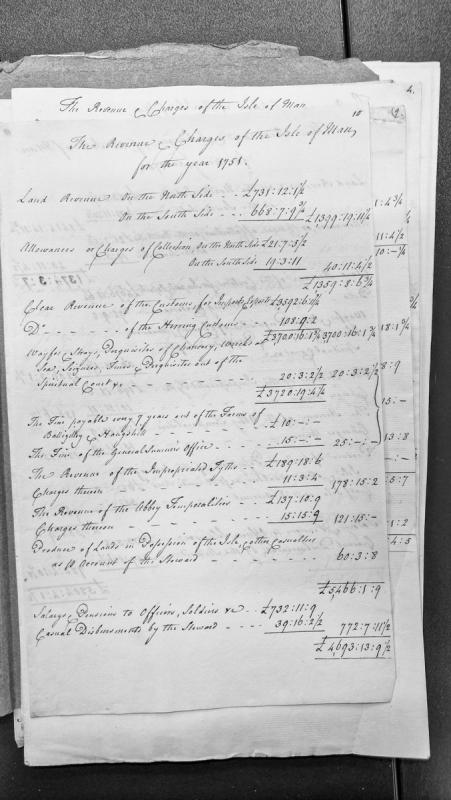 The Revenue & Charges of the Isle of Man
10
The Revenue & Charges, of the Isle of Man,
for the year 1751.
Land Revenue On the North Side - £731:12:1½
On the South Side - - 668:7:9¾ £1399:19:11¼
Allowances or Charges of Collection, On the North Side £21:7:3½
On the South Side 19:3:11 40:11:4½
£1359:8:6¾
Clear Revenue of the Customs, for Imports & Exports £3592:6:11½
Do - - - - - of the Herring Customs - - - 108:9:2
£3700:16:1¾ 3700:16:1¾
Wayfes, Strays, Perquisites of Chancery, Wrecks at
Sea, Seizures, Fines & Perquisites out of the
Spiritual Court &c. - - - - - - - 20:3:2½ 20:3:2½
£3720:19:4¼
The Fine payable every 7 years out of the Farms of
Balligilley & Haughill - - - - £10:-:-
The Fine of the General Sumner's Office - - - 15:-:- 25:-:-
The Revenue of the Impropriated Tyths - - £189:18:6
Charges thereon - - - - - 11:3:4 178:15:2
The Revenue of the Abbey Temporalities - - £137:10:9
Charges thereon - - - - - 15:15:9 121:15:-
Produce of Lands in Possession of the Isle, & other Casualties
as p Account of the Steward - - - - 60:3:8
£5466:1:9
Salarys & Pensions to Officers, Soldiers &c - - £732:11:9
Casual Disbursments by the Steward - - - - 39:16:2½ 772:7:11½
£4,693:13:9½
4.
1:4¾
11:4½
10:-¼
18:1¾
8:9
15:-
13:8
-:-
5:7
1:2
4:5